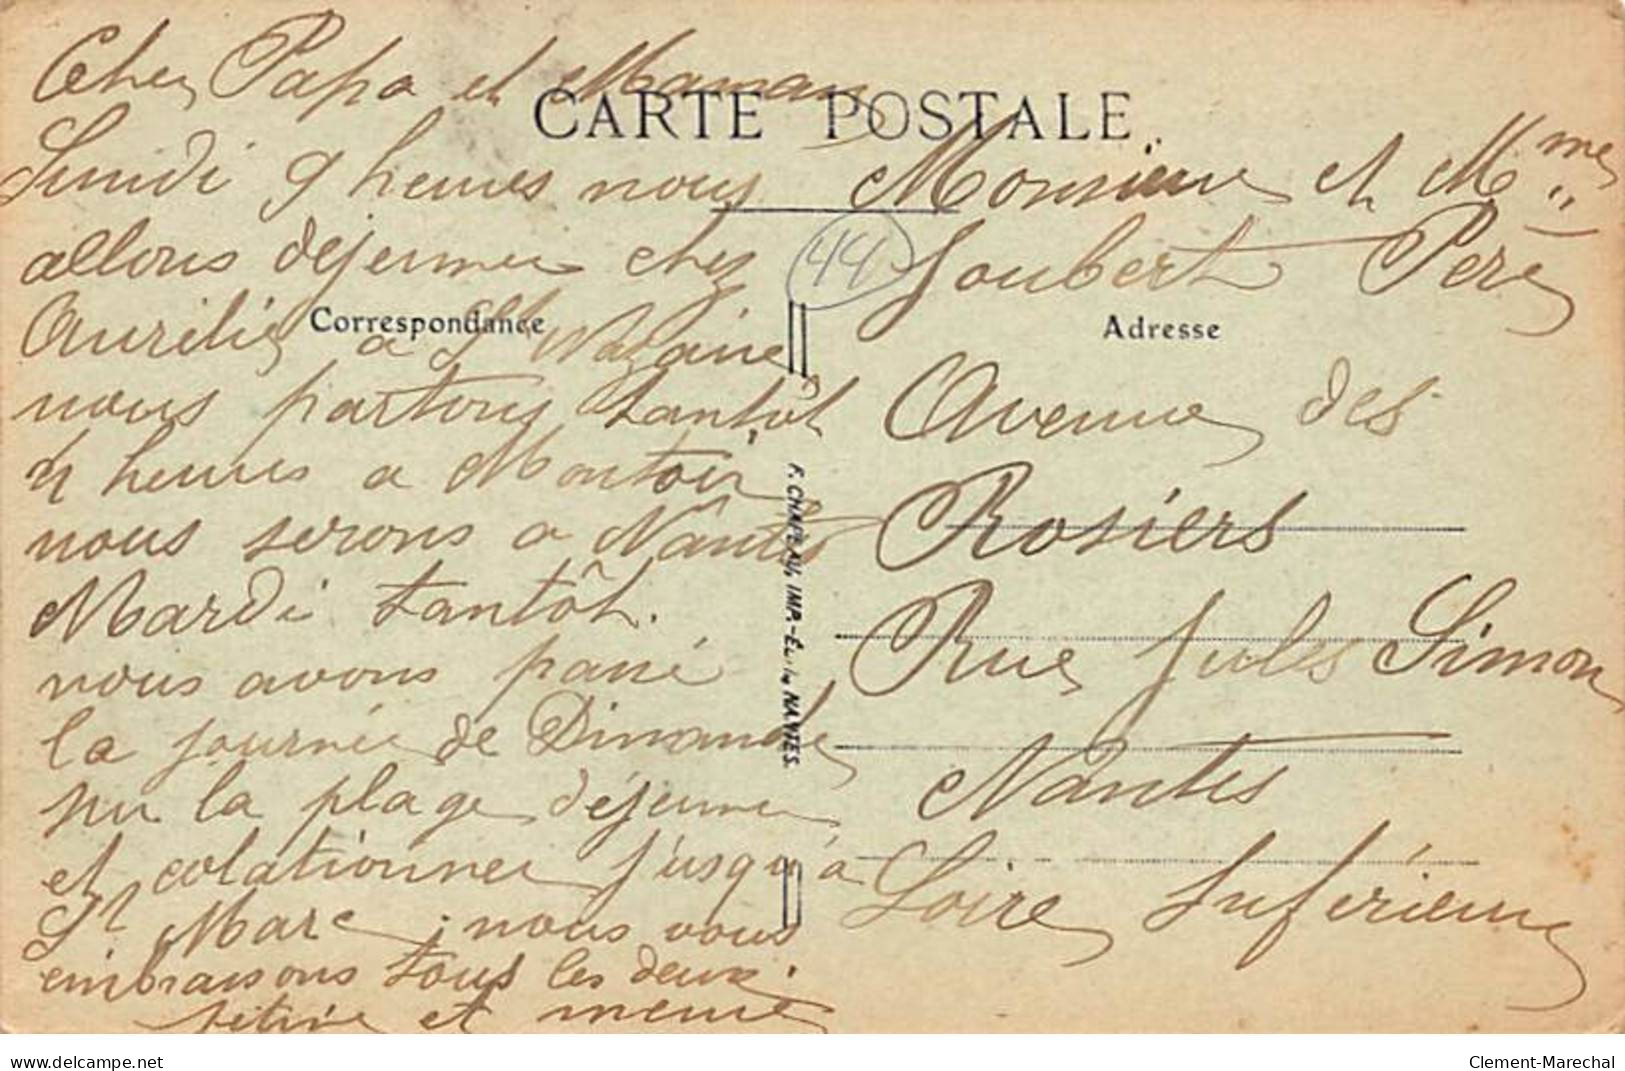 CARTE POSTALE
Cher Papa et Maman
Lundi 9 heures nous
allons déjeuner chez
Aurélie a St Nazaire
nous partons tantôt
4 heures a Montoir
nous serons a Nantes
Mardi tantôt.
nous avons passé
la journée de Dimanche
sur la plage déjeuner
et colationner jusqu'à
St Marc ; nous vous
embrassons tous les deux.
et
Correspondance
44
F. CHAPEAU, IMP.-Édit. NANTES.
Adresse
Monsieur et Mme
Joubert Père
Avenue des
Rosiers
Rue Jules Simon
Nantes
Loire Inférieure
www.delcampe.net
Clement-Marechal